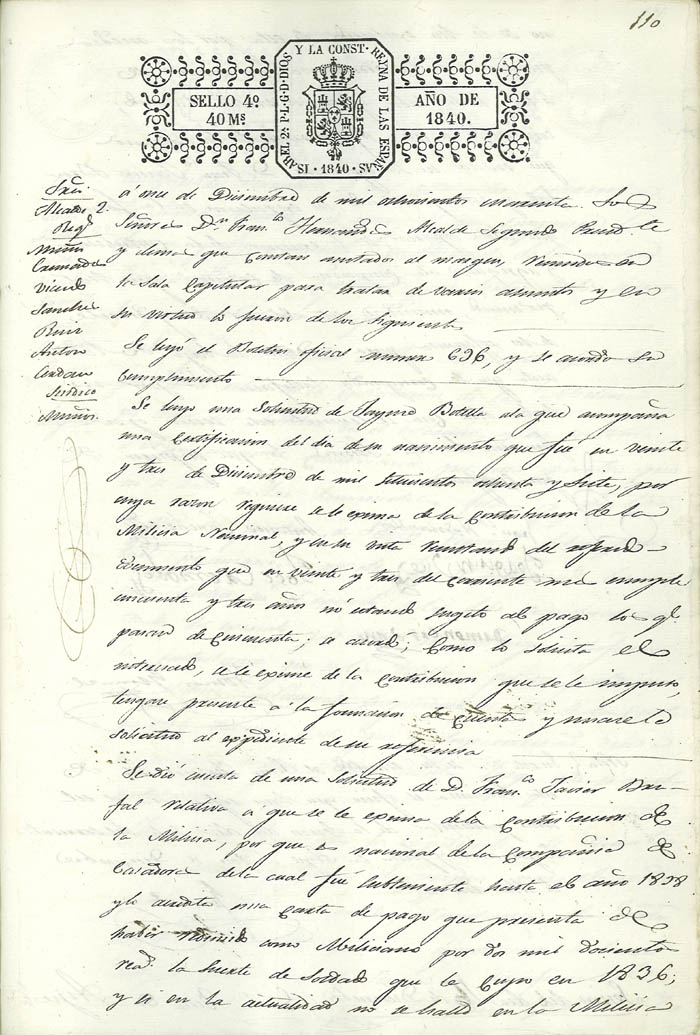 110
ISABEL 2ª P.L.G.D.DIOS Y LA CONST. REYNA DE LAS ESPAÑAS
·1840·
SELLO 4º
40 Ms.
AÑO DE
1840.
Sres.
Alcalde 2.
Regs.
Muñoz
Vicente
Sanchez
Ruiz
Anton
Cerdan
Sindico
Muñoz.
á once de Diciembre de mil ochocientos cuarenta. Los
Señores Dn. Franco. Hernandez Alcalde Segundo Presidte.
y demas que constan anotados al margen, reunidos en
la Sala Capitular para tratar de varios asuntos y en
su virtud lo fueron de los siguientes
Se leyó el Boletin oficial numero 696, y se acordó su
cumplimiento
Se leyó una solicitud de Botella a la que acompaña
una certificacion del dia de su nacimiento que fué en veinte
y tres de Diciembre de mil setecientos ochenta y siete, por
cuya razon requiere se le exima de la contribucion de la
Milicia Nacional, y en su vista resultando del referido
documento que en veinte y tres del corriente mes cumple
cincuenta y tres años no estando sugeto al pago los qe.
pasan de cincuenta; se acordó; Como lo solicita el
interesado, se le exime de la contribucion que se le impuso,
tengase presente á la formacion de cuentas y unase la
solicitud al expediente de su referencia
Se dió cuenta de una solicitud de D. Franco. Javier
relativa á que se le exima de la contribucion de
la Milicia, por que es nacional de la Compañia de
Cazadores de la cual fué subteniente hasta el año 1838
y lo acredita una carta de pago que presenta de
haber redimido como Miliciano por dos mil doscientos
reas. la suerte de Soldado que le cupo en 1836;
y si en la actualidad no se halla en la Milicia